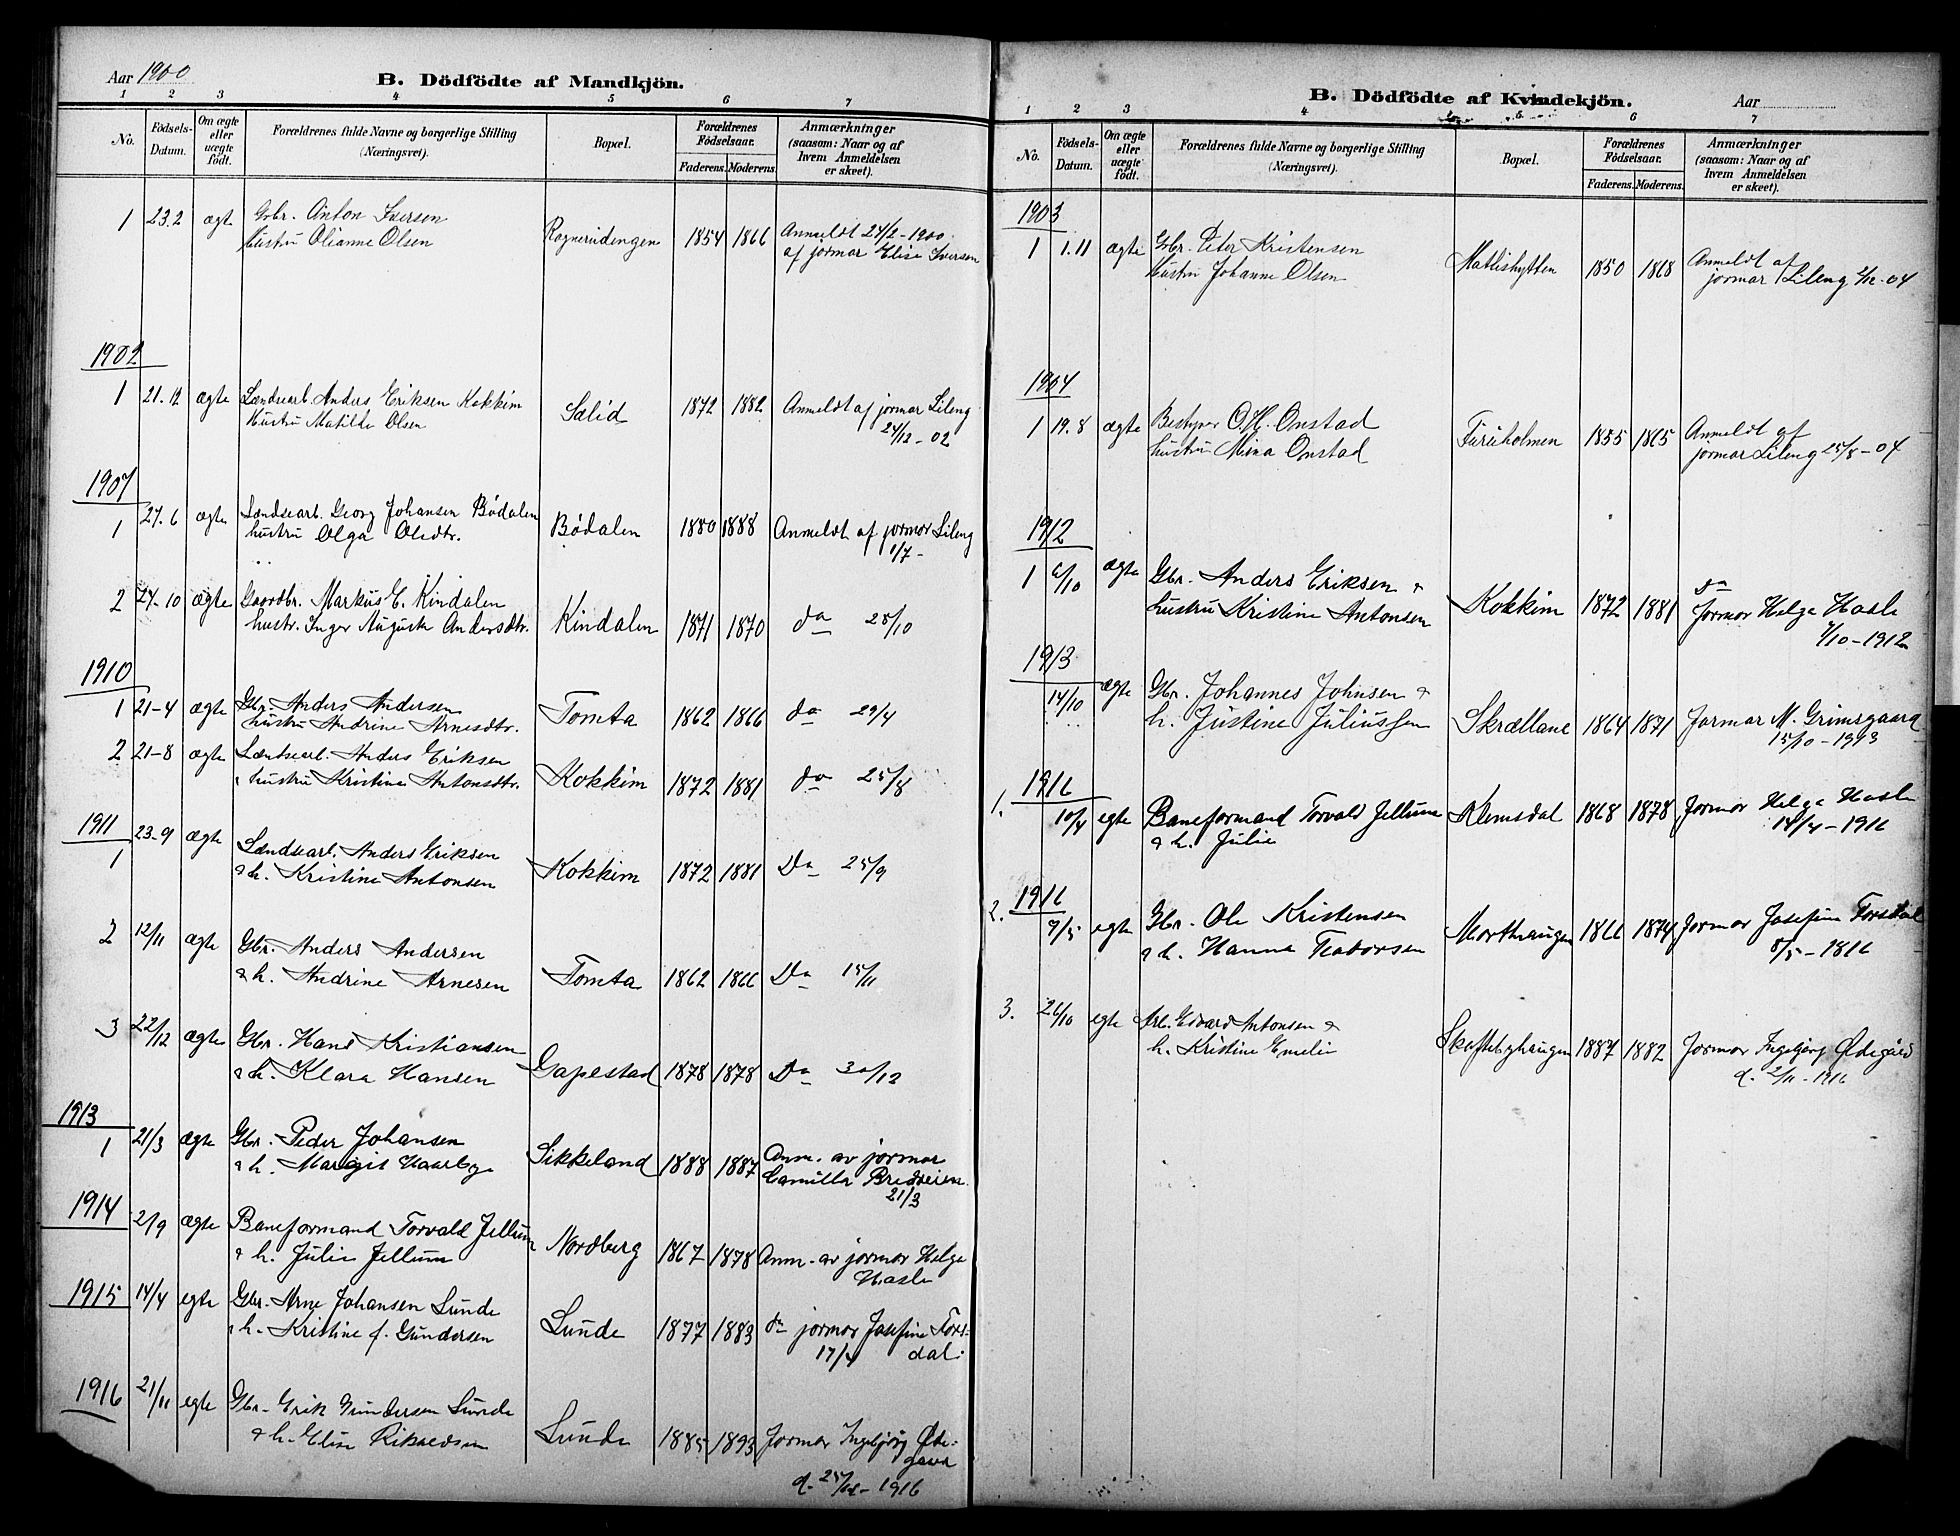 Aar 1900
B. Dödfödte af Mandkjön.
1 2 3 4 5 6 7
No. Födsels-Datum. Om ægte eller uægte födt. Forældrenes fulde Navne og borgerlige Stilling (Næringsvei). Bopæl. Forældrenes Födselsaar. Faderens. Moderens. Anmærkninger (saasom: Naar og af hvem Anmeldelsen er skeet).
1 23.2 ægte Gbr. Anton Iversen Rognerudengen 1854 1866 Anmeldt 24/2-1900
Hustru Olianne Olsen af jormor Elise Iversen
1902
1 21.12 ægte Lændsearb. Anders Eriksen Kokkim Sælid 1872 1882 Anmeldt af jormor Lileng
Hustru Matilde Olsen 24/12-02
1907
1 27.6 ægte Lændsearb. Georg Johansen Bödalen Bödalen 1880 1888 Anmeldt af jormor Lileng
hustru Olga Olsdtr. 1/7-
2 24-10 ægte Gaardbr. Markus E. Kindalen Kindalen 1871 1870 do 28/10
hustr. Inger Auguste Andersdtr.
1910
1 21-4 ægte Gbr. Anders Andersen Tomta 1862 1866 do 29/4
hustru Andrine Arnesdtr.
2 21-8 ægte Lændsearb. Anders Eriksen Kokkim 1872 1881 do 25/8
& hustru Kristine Antonsdtr.
1911
1 23-9 ægte Lændsearb. Anders Eriksen Kokkim 1872 1881 Do 25/9
& h. Kristine Antonsen
2 12/11 ægte Gbr. Anders Andersen Tomta 1862 1866 Do 15/11
& h. Andrine Arnesen
3 22/12 ægte Gbr. Hans Kristiansen Gapestad 1878 1878 Do 30/12
& h. Klara Hansen
1913
1 21/3 ægte Gbr. Peder Johansen Sikkeland 1888 1887 Anm. av jormor
& h. Margit Haarby Camilla Bredveien
21/3
1914
2/9 ægte Baneformand Torvald Jellum Nordberg 1867 1878 Anm. av jormor Helga
& h. Julie Jellum Hasle
1915
14/4 egte Gbr. Arne Johansen Lunde Lunde 1877 1883 do jormor Josefine Fors-
& h. Kristine f. Gundersen 17/4 dal.
1916
21/11 egte Gbr. Erik Gundersen Lunde Lunde 1885 1893 Jormor Ingebjörg Öde-
& h. Elise gaard
d. 1916
B. Dödfödte af Kvindekjön.
Aar
1 2 3 4 5 6 7
No. Födsels-Datum. Om ægte eller uægte födt. Forældrenes fulde Navne og borgerlige Stilling (Næringsvei). Bopæl. Forældrenes Födselsaar. Faderens. Moderens. Anmærkninger (saasom: Naar og af hvem Anmeldelsen er skeet).
1903
1 1.11 ægte Gbr. Peter Kristensen Matlishytten 1850 1868 Anmeldt af
Hustru Johanne Olsen jormor Lileng 2/12-04
1904
1 19.8 ægte Bestyrer O. H. Onstad Furuholmen 1855 1865 Anmeldt af
hustru Mina Onstad jormor Lileng 25/8-04
1912
1 6/10 ægte Gbr. Anders Eriksen & Kokkim 1872 1881 do
hustru Kristine Antonsen Jormor Helga Hasle
7/10-1912
1913
14/10 ægte Gbr. Johannes Johnsen & Skrællane 1864 1871 Jormor M. Grimsgaard
h. Justine Juliussen 15/10-1913
1916
1. 10/4 egte Baneformand Torvald Jellum Klemsdal 1868 1878 Jormor Helga Hasle
& h. Julie 14/4-1916
1916
2. 7/5 egte Gbr. Ole Kristensen Morthaugen 1866 1874 Jormor Josefine Forsdal
& h. Hanna Taborsen 8/5-1816
3. 26/10 egte Arb. Edvard Antonsen & Skoftebyhaugen 1887 1882 Jormor Ingebjörg Ödegård
h. Kristine Emelie d. 2/11-1916